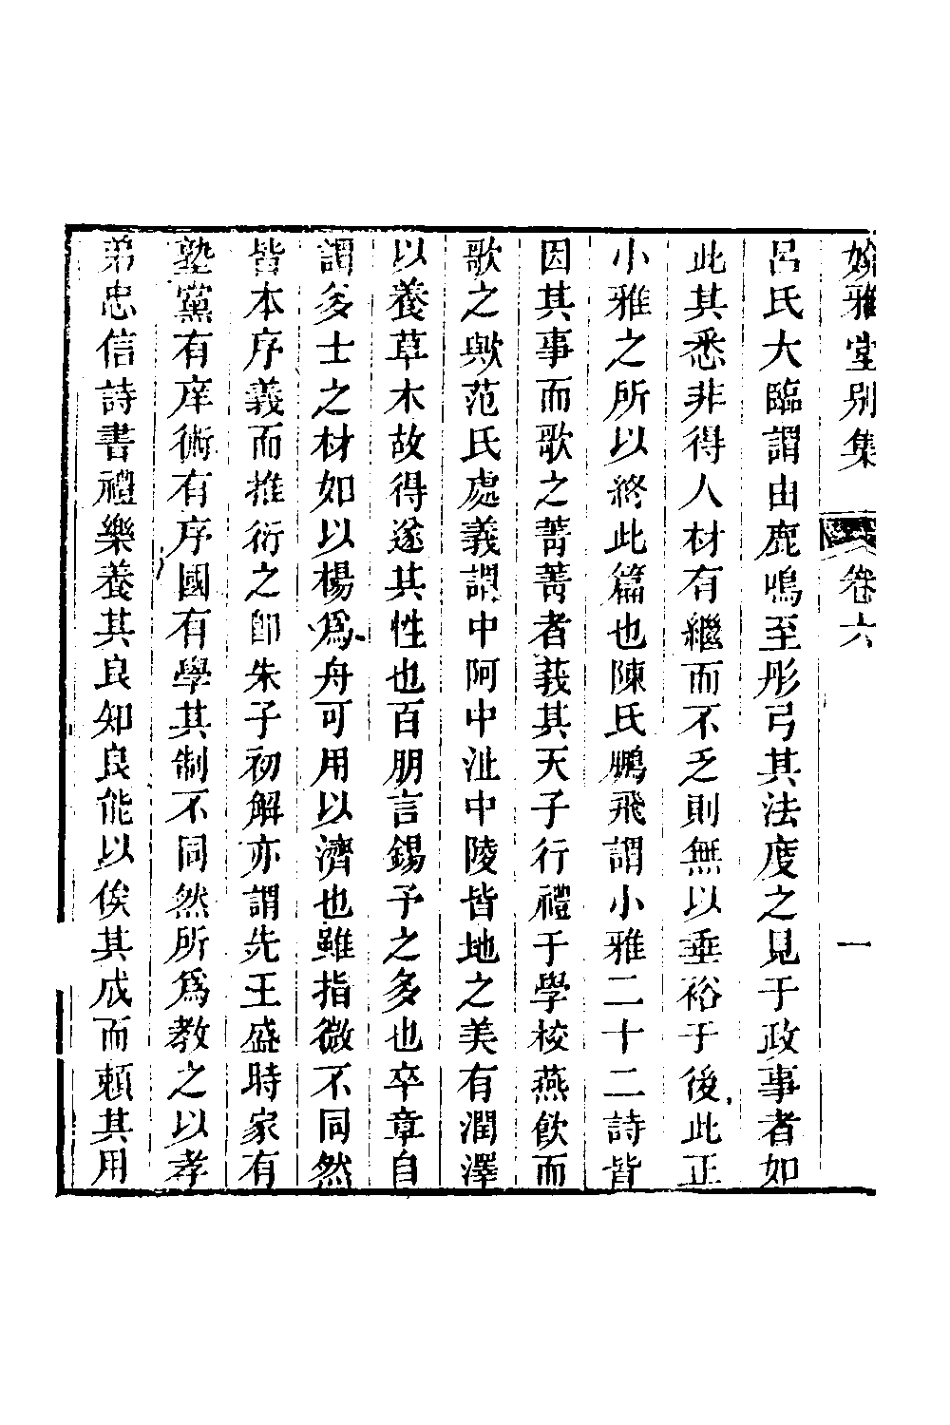 婘雅堂別集 卷六 一
呂氏大臨謂由鹿鳴至彤弓其法度之見于政事者如
此其悉非得人材有繼而不乏則無以垂裕于後此正
小雅之所以終此篇也陳氏鵬飛謂小雅二十二詩皆
因其事而歌之菁菁者莪其天子行禮于學校燕飲而
歌之歟范氏處義謂中阿中沚中陵皆地之美有潤澤
以養草木故得遂其性也百朋言錫予之多也卒章自
謂多士之材如以楊爲舟可用以濟也雖指微不同然
皆本序義而推衍之卽朱子初解亦謂先王盛時家有
塾黨有庠術有序國有學其制不同然所爲教之以孝
弟忠信詩書禮樂養其良知良能以俟其成而頼其用